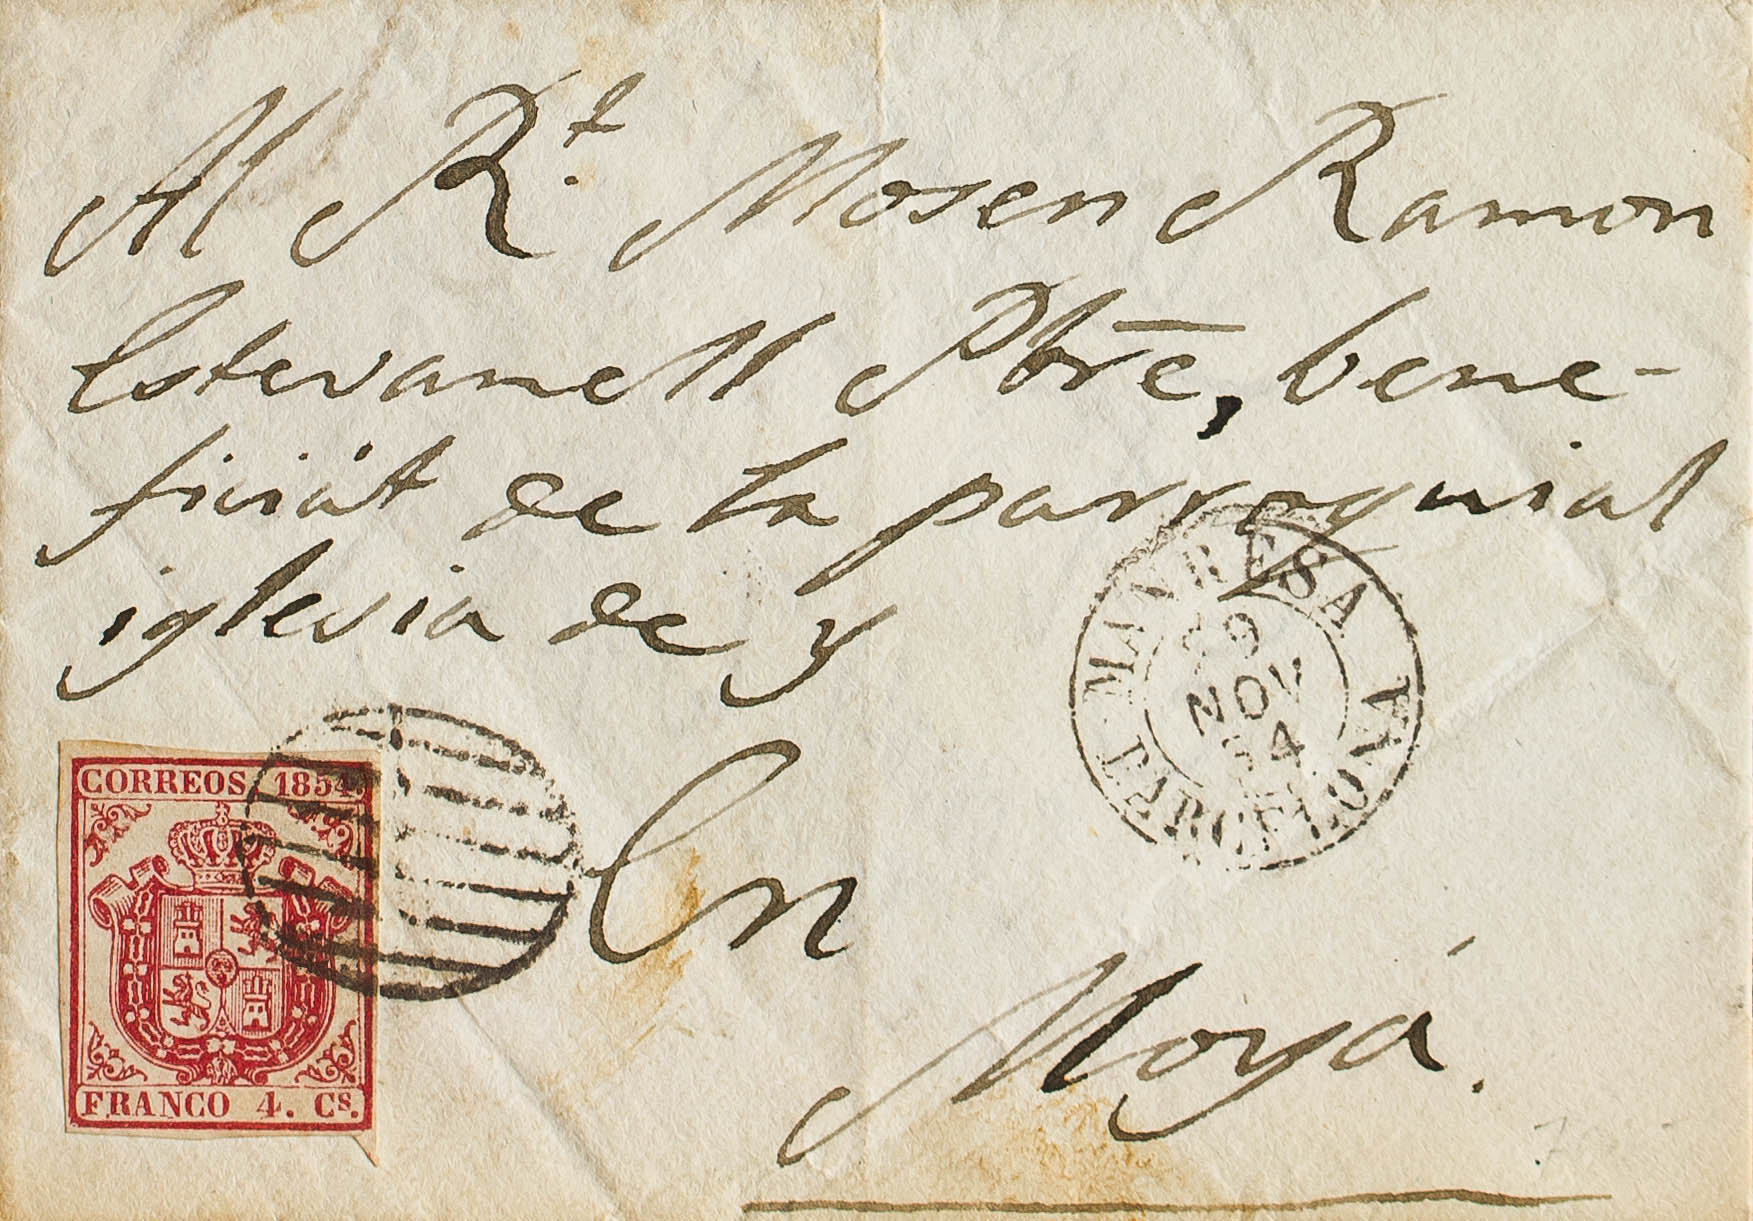 Al R.t Mosen Ramon
Estevanell Pbre, bene-
ficiát de la parroquial
iglesia de y
En
Moyá.
MANRESA
29
NOV
54
BARCELONA
CORREOS 1854.
FRANCO 4. Cs.